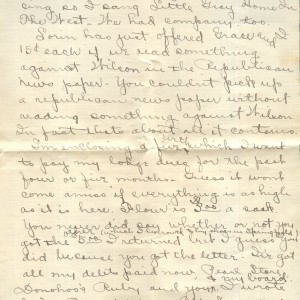 sing so I sang Little Gray Home In
The West. We had company too.
John has just offered Grace and I
15¢ each if we read something
against Wilson in the Republican
news paper. You couldn't pick up
a republican news paper without
reading something against Wilson
In fact thats about all it contains.
I'm enclosing a five which I want
to pay my lodge dues for the past
four or five months. Guess it wont
come amiss if everything is as high
as it is here. Flour is a sack.
You never did say whether or not you
got the $5.00 I returned but I guess you
did because you got the letter. I've got
all my debts paid now. Pearl Stone
& my board.
Donohoo's Ruby and your, I wrote